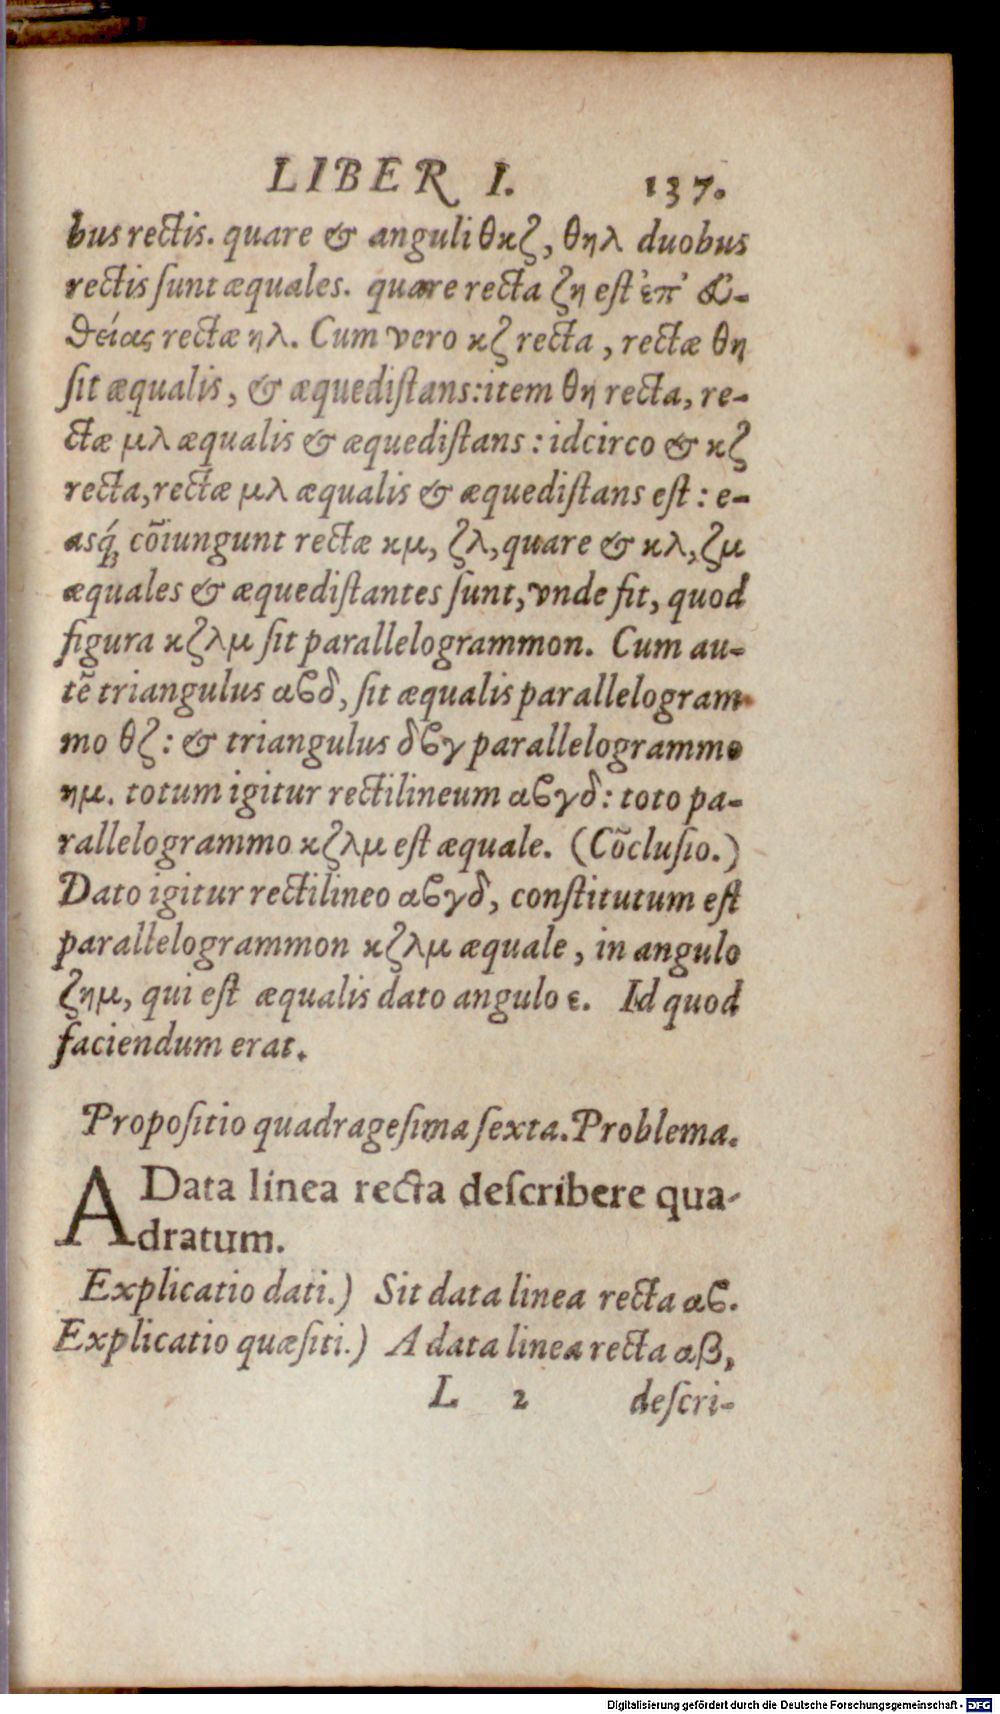 LIBER I. 137.
bus rectis. quare & anguli θκζ, θηλ duobus
rectis ſunt æquales. quare recta ζη eſt ἐπ' εὐ-
θείας rectæ ηλ. Cum vero κζ recta, rectæ θη
ſit æqualis, & æquediſtans: item θη recta, re-
ctæ μλ æqualis & æquediſtans: idcirco & κζ
recta, rectæ μλ æqualis & æquediſtans eſt: e-
asq́; cōiungunt rectæ κμ, ζλ, quare & κλ, ζμ
æquales & æquediſtantes ſunt, vnde fit, quod
figura κζλμ ſit parallelogrammon. Cum au-
tē triangulus αϐδ, ſit æqualis parallelogram-
mo θζ: & triangulus δϐγ parallelogrammo
ημ. totum igitur rectilineum αϐγδ: toto pa-
rallelogrammo κζλμ eſt æquale. (Cōcluſio.)
Dato igitur rectilineo αϐγδ, conſtitutum eſt
parallelogrammon κζλμ æquale, in angulo
ζημ, qui eſt æqualis dato angulo ε. Id quod
faciendum erat.
Propoſitio quadrageſima ſexta. Problema.
A Data linea recta deſcribere qua-
dratum.
Explicatio dati.) Sit data linea recta αϐ.
Explicatio quæſiti.) A data linea recta αβ,
L 2 deſcri-
Digitalisierung gefördert durch die Deutsche Forschungsgemeinschaft - DFG